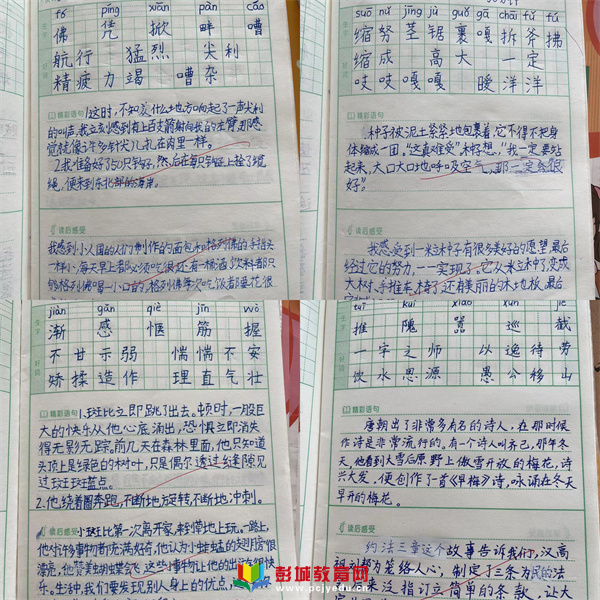 fó píng xiān pàn cáo
佛 凭 掀 畔 嘈
航行 猛烈 尖利
精疲力竭 嘈杂
精彩语句
1.这时,不知从什么地方响起了一声尖利
的叫声,我立刻感到有上百支箭射向我的左臂,那感
觉就像许多针扎在肉里一样。
2.我准备好了50只钩子,然后在每只钩子上拴了缆
绳,便来到东北部的海岸。
读后感受
我感到小人国的人们制作的面包和格列佛的手指头
一样小,每天早上都必须吃很
够格列佛喝一小口的,格列佛每次吃饭都要花很
suō nǔ jīng jù guǒ gā chāi fǔ fú
缩 努 茎 锯 裹 嘎 拆 斧 拂
缩成 高大 一定
吱吱嘎嘎 暖洋洋
精彩语句
种子被泥土紧紧地包裹着,它不得不把身
体缩成一团,“这真难受”,种子想,“我一定要站
起来,大口大口地呼吸空气,那一定会很
好”。
读后感受
我感受到一粒种子有很多美好的愿望,最后
经过它的努力,一一实现了。它从种子变成
大树、手推车、椅子还有美丽的木地板,最后
jiàn gǎn qiè jīn wò
渐 感 惬 筋 握
不甘示弱 惴惴不安
矫揉造作 理直气壮
精彩语句
1.斑比立即跳了出去。顿时,一股巨
大的快乐从他心底涌出,恐惧立即消失
得无影无踪。前几天在森林里面,他只知道
头顶上是绿色的树叶,只是偶尔透过缝隙见
过斑斑蓝点。
2.他绕着圈奔跑,不断地旋转,不断地冲刺。
读后感受
小斑比第一次离开家,来到草地上玩。一路上,
他对许多事物都充满好奇,他认为小蚱蜢的
漂亮,他赞美蝴蝶会飞,这些小事物让他的出游很快
乐。生活中,我们要发现别人身上的优点,
tuī kuí xiāo xún jié
推 隗 嚣 巡 截
一字之师 以逸待劳
饮水思源 愚公移山
精彩语句
唐朝出了非常多有名的诗人,在那时候
作诗是非常流行的。有一个诗人叫齐己,那年冬
天,他看到大雪后原野上傲雪开放的梅花,诗
兴大发,便创作了一首《早梅》诗,咏诵在冬天
早开的梅花。
读后感受
约法三章这个故事告诉我们,汉高
祖刘邦为笼络人心,制定了三条为民的法
来没指订立简单的条款,让大
彭城教育网